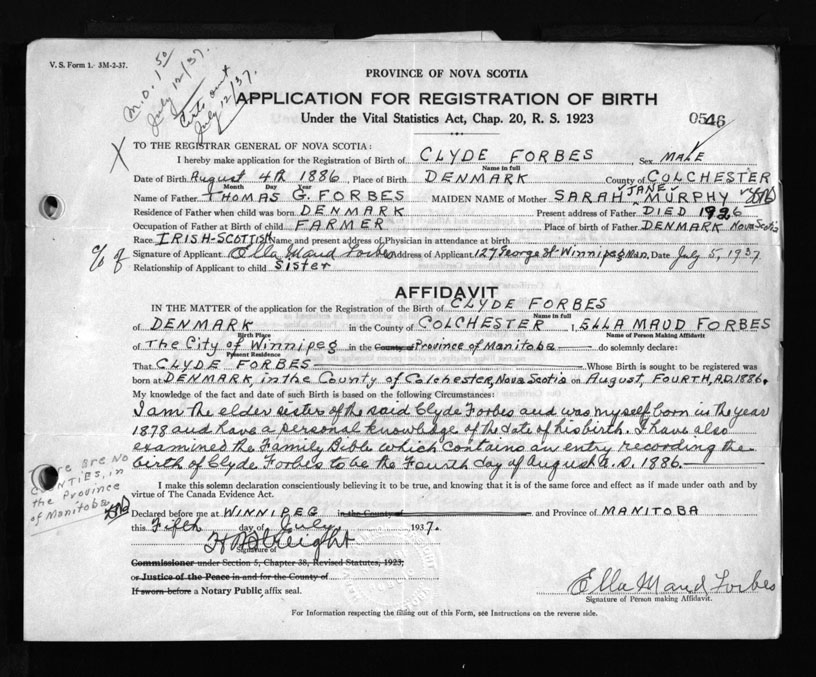 V. S. Form 1. 3M-2-37.
M.O. 1 50
July 12/37.
Certs out
July 12/37.
PROVINCE OF NOVA SCOTIA
APPLICATION FOR REGISTRATION OF BIRTH
Under the Vital Statistics Act, Chap. 20, R. S. 1923
0546
X
TO THE REGISTRAR GENERAL OF NOVA SCOTIA:
I hereby make application for the Registration of Birth of CLYDE FORBES Sex MALE
Name in full
Date of Birth August 4th 1886 Place of Birth DENMARK County of COLCHESTER
Month Day Year
Name of Father THOMAS G. FORBES MAIDEN NAME of Mother SARAH JANE MURPHY
Residence of Father when child was born DENMARK Present address of Father DIED 1926
Occupation of Father at Birth of child FARMER Place of birth of Father DENMARK Nova Scotia
Race IRISH-SCOTTISH Name and present address of Physician in attendance at birth
% of
Signature of Applicant Ella Maud Forbes Address of Applicant 127 George St-Winnipeg Man. Date July 5, 1937
Relationship of Applicant to child Sister
AFFIDAVIT
IN THE MATTER of the application for the Registration of the Birth of CLYDE FORBES
Name in full
of DENMARK in the County of COLCHESTER I, ELLA MAUD FORBES
Birth Place Name of Person Making Affidavit
of The City of Winnipeg in the County of Province of Manitoba do solemnly declare:
Present Residence
That CLYDE FORBES Whose Birth is sought to be registered was
born at DENMARK, in the County of Colchester, Nova Scotia on August, FOURTH, A.D. 1886.
My knowledge of the fact and date of such Birth is based on the following Circumstances:
I am the elder sister of the said Clyde Forbes and was myself born in the year
1878 and have a personal knowledge of the date of his birth. I have also
examined the Family Bible which contains an entry recording the
birth of Clyde Forbes to be the Fourth day of August A.D. 1886.
There are No
COUNTIES, in
the Province
of Manitoba
I make this solemn declaration conscientiously believing it to be true, and knowing that it is of the same force and effect as if made under oath and by
virtue of The Canada Evidence Act.
Declared before me at WINNIPEG in the County of and Province of MANITOBA
this Fifth day of July 1937.
Signature of
Commissioner under Section 5, Chapter 38, Revised Statutes, 1923;
or Justice of the Peace in and for the County of
If sworn before a Notary Public, affix seal.
Ella Maud Forbes
Signature of Person making Affidavit.
For Information respecting the filling out of this Form, see Instructions on the reverse side.